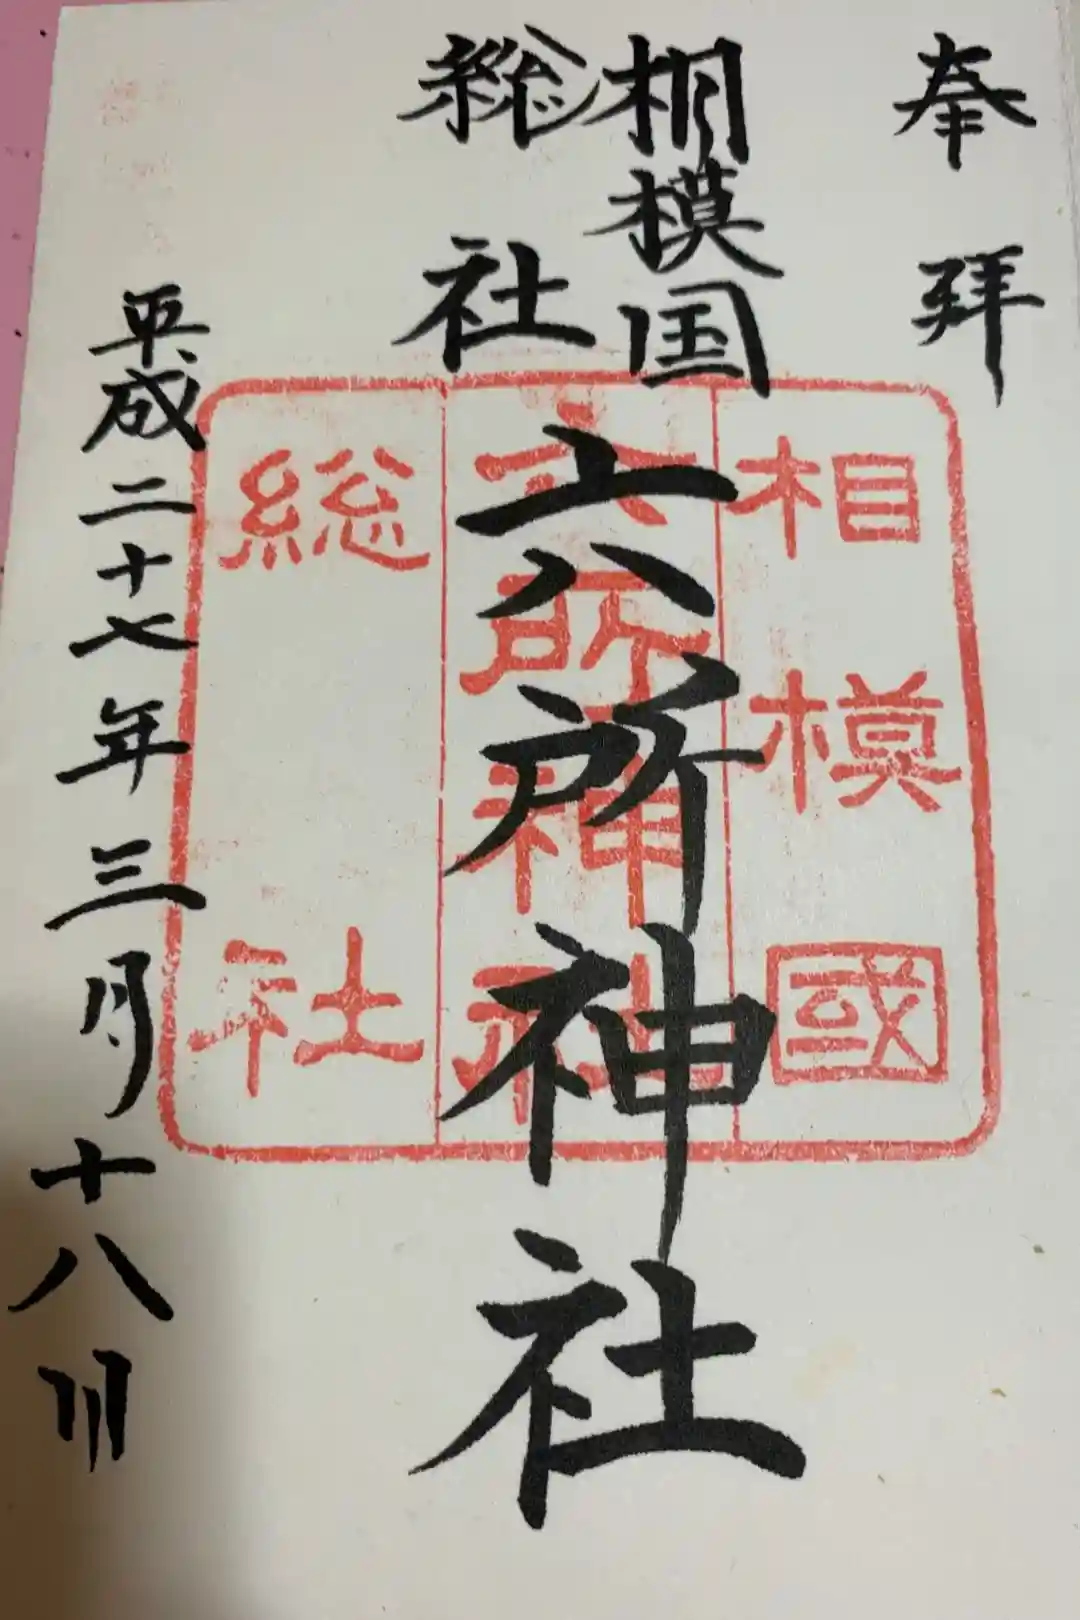 奉拝
相模国
総社
六所神社
平成二十七年三月十八日
相模國
六所神社
総社